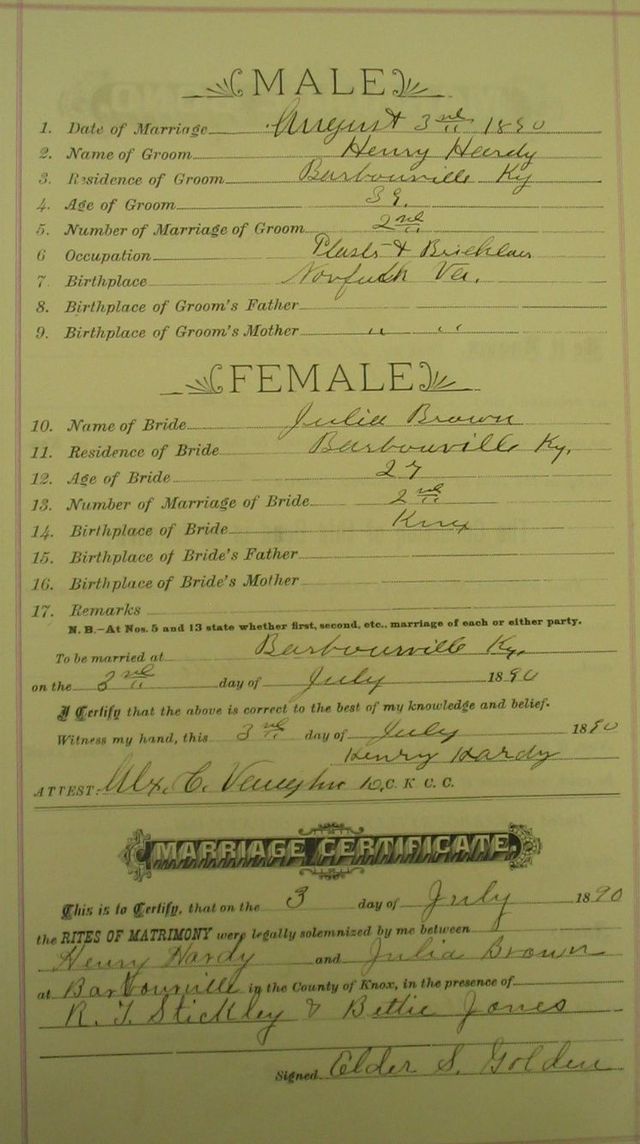 MALE
1. Date of Marriage August 3rd 1890
2. Name of Groom Henry Hardy
3. Residence of Groom Barbourville Ky
4. Age of Groom 39.
5. Number of Marriage of Groom 2nd
6 Occupation Plastr &
7. Birthplace Norfulk Va.
8. Birthplace of Groom's Father
9. Birthplace of Groom's Mother " "
FEMALE
10. Name of Bride Julia Brown
11. Residence of Bride Barbourville Ky.
12. Age of Bride 27
13. Number of Marriage of Bride 2nd
14. Birthplace of Bride Knox
15. Birthplace of Bride's Father
16. Birthplace of Bride's Mother
17. Remarks
N. B.—At Nos. 5 and 13 state whether first, second, etc., marriage of each or either party.
To be married at Barbourville Ky.
on the 3rd day of July 1890
I Certify that the above is correct to the best of my knowledge and belief.
Witness my hand, this 3rd day of July 1890
Henry Hardy
ATTEST: C. Vaughn D.C. K C. C.
MARRIAGE CERTIFICATE.
This is to Certify, that on the 3 day of July 1890
the RITES OF MATRIMONY were legally solemnized by me between
Henry Hardy and Julia Brown
at Barbourville in the County of Knox, in the presence of
R. T. Stickley & Bettie Jones
Signed Elder S. Golden